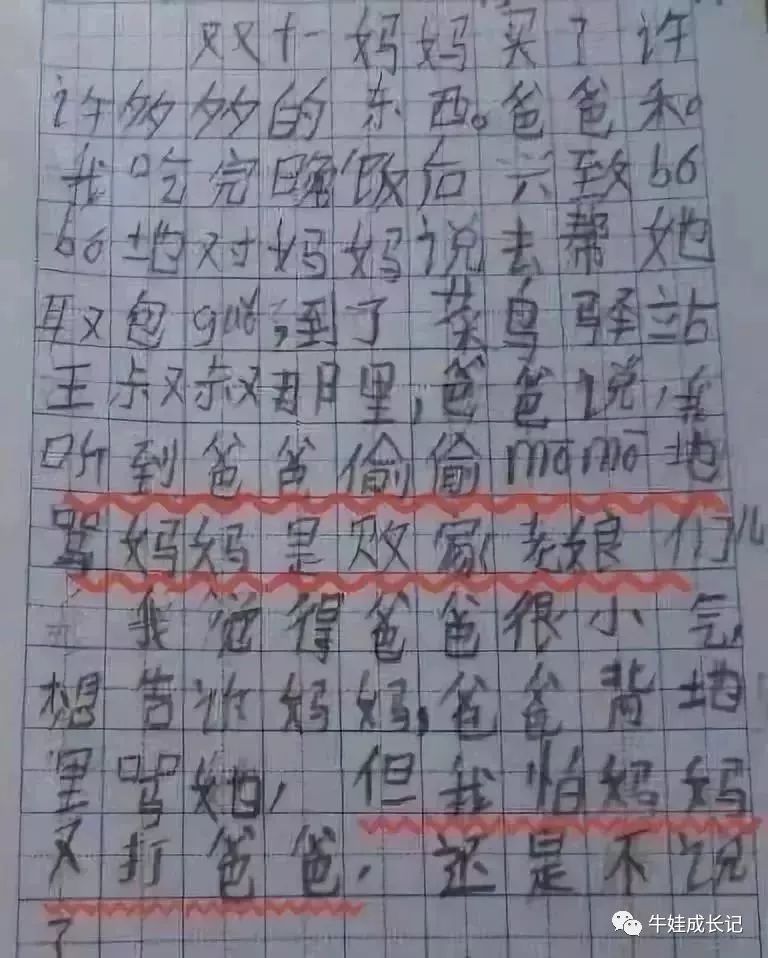 双十一妈妈买了许
许多多的东西。爸爸和
我吃完晚饭后兴致bó
bó地对妈妈说去帮她
取包guǒ,到了菜鸟驿站
王叔叔那里,爸爸说,我
听到爸爸偷偷mōmō地
骂妈妈是败家老娘们儿
我觉得爸爸很小气,
想告诉妈妈,爸爸背地
里骂她,但我怕妈妈
又打爸爸,还是不说
了
牛娃成长记